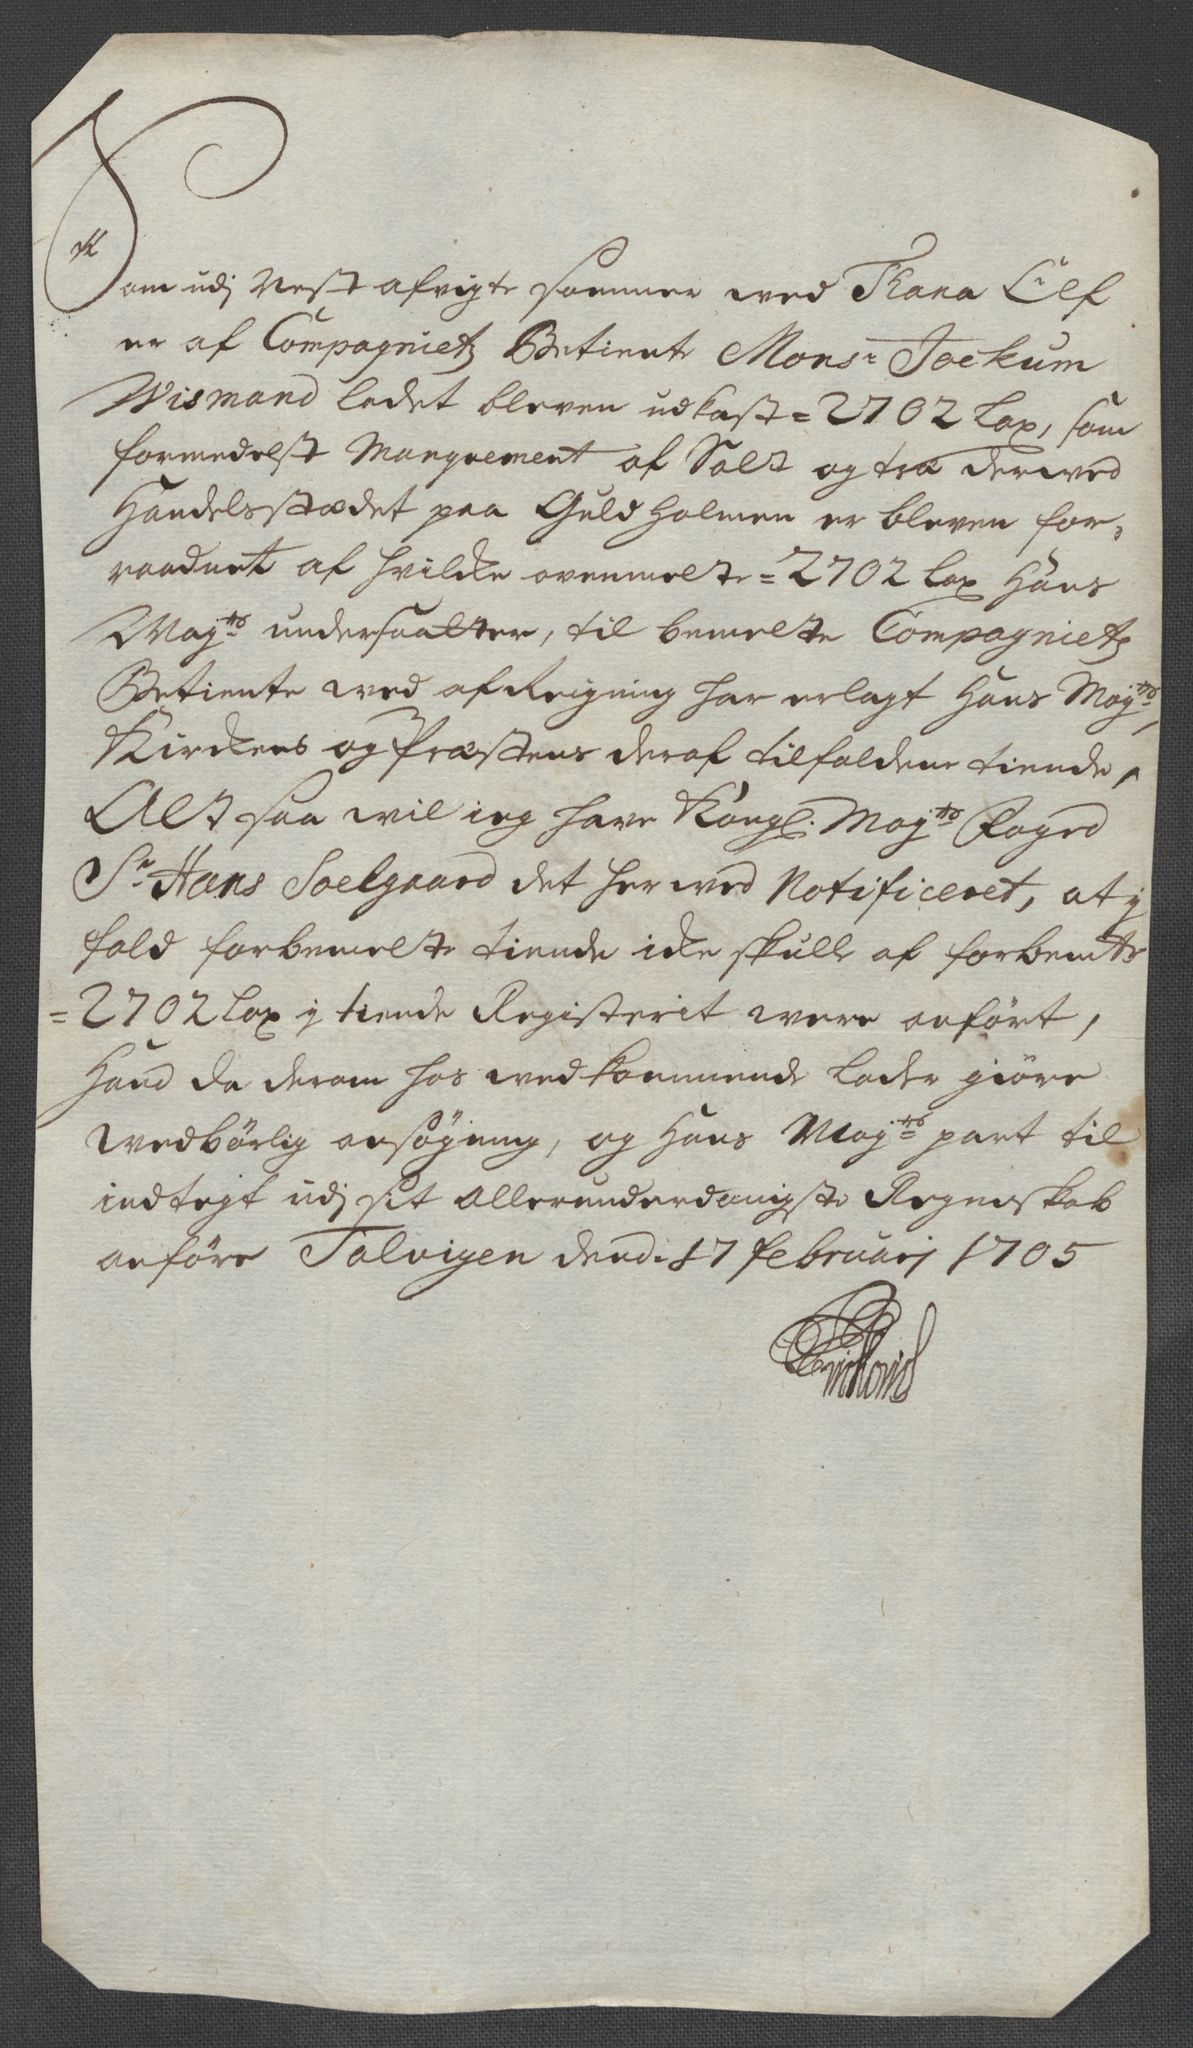 Som udj nest afvigte sommer wed Thana Elf
er af Compagnietz Betiente Monsr Jockum
Wismand ladet bleven udkast = 2702 lax, som
formedelst Manquement af Salt og træ derwed
Handelsstædet paa Guldholmen er bleven for,,
raadnet af hvilcke ovenmelte = 2702 lax Hans
Mayts undersaatter, til bemelte Compagnietz
Betiente wed afReigning har erlagt Hans Mayts,
Kirckens og Præstens deraf tilfaldene tiende,
Alt saa wil ieg have Kongl. Mayts Foged
Sr Hans Soelgaard det herwed Notificeret, at j
fald forbemelte tiende icke skulle af forbemte
= 2702 lax j tiende Registerit were anført,
Hand da derom hos wedkommende lader giöre
wedbörlig ansögning, og Hans Mayts part til
indtegt udj sit allerunderdanigste Regneskab
anföre Talvigen dend: 17 februarj 1705